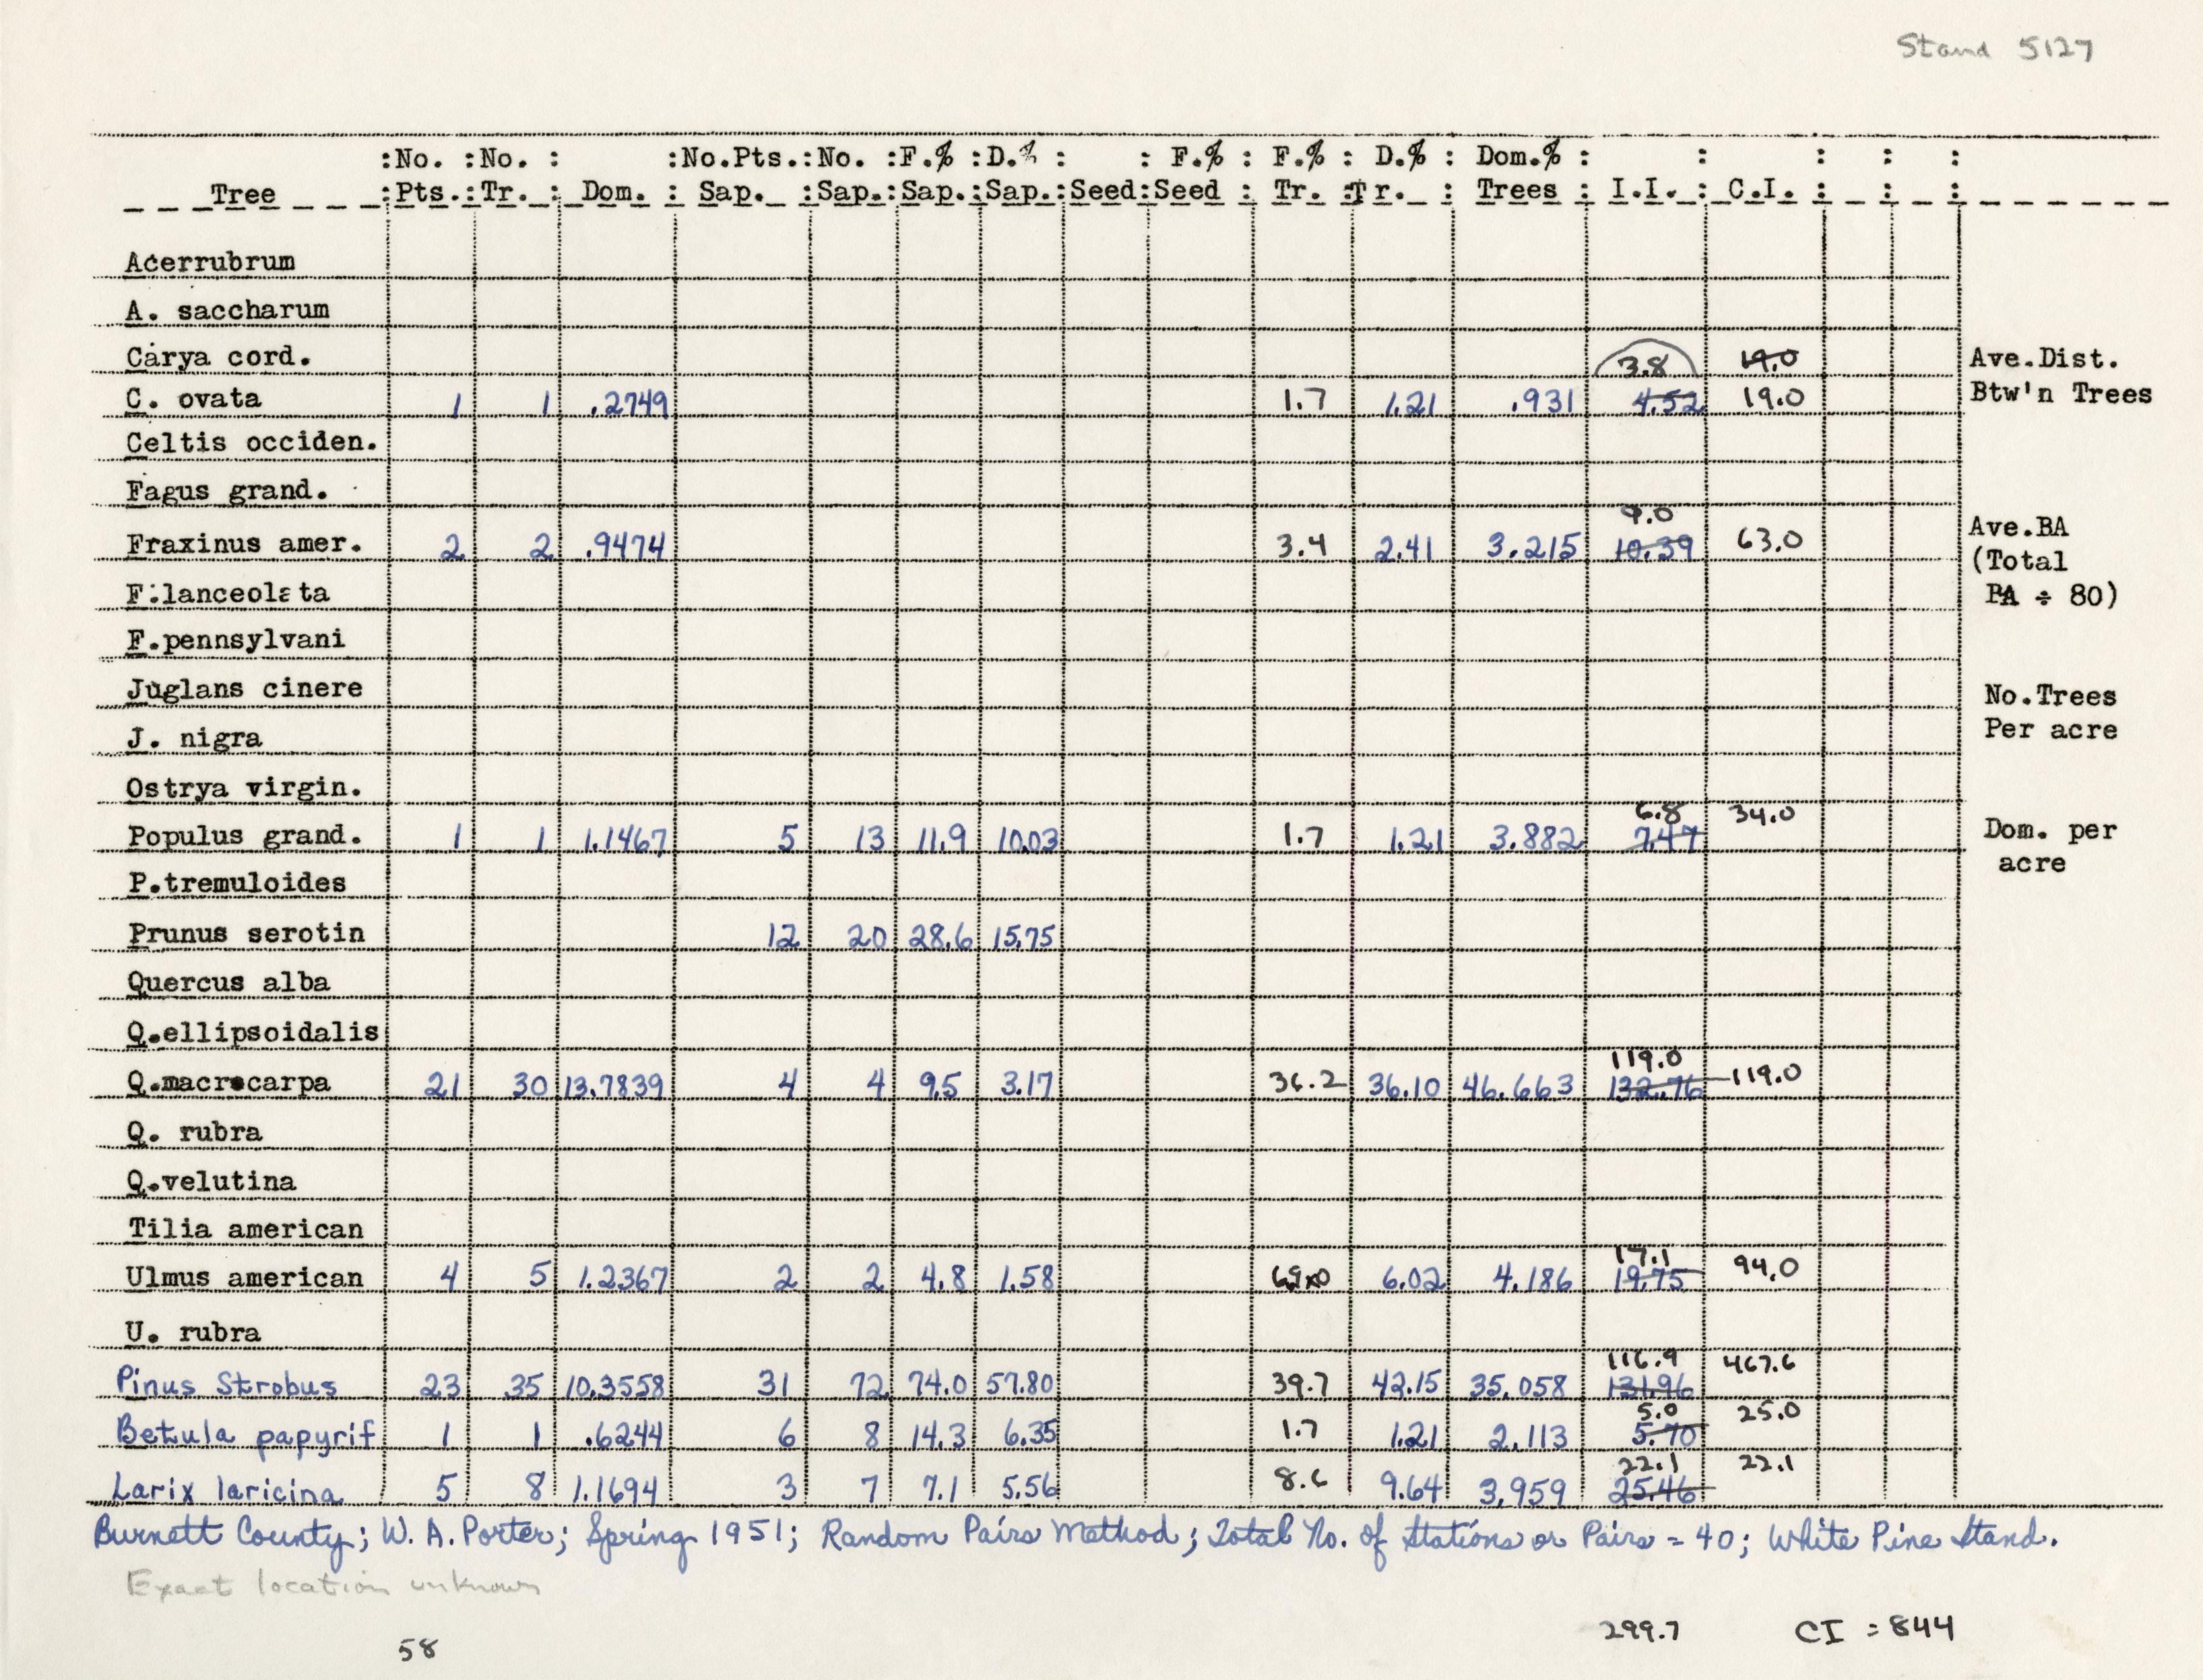 Stand 5127
:No. :No. : :No.Pts.:No. :F.% :D.% : : F.% : F.% : D.% : Dom.% : : : : :
Tree :Pts.:Tr. : Dom. : Sap. :Sap.:Sap.:Sap.:Seed:Seed : Tr. :Tr. : Trees : I.I. : C.I. : : :
Acerrubrum
A. saccharum
Carya cord. 3.8 19.0 Ave.Dist.
C. ovata 1 1 .2749 1.7 1.21 .931 4.52 19.0 Btw'n Trees
Celtis occiden.
Fagus grand.
9.0
Fraxinus amer. 2 2 .9474 3.4 2.41 3.215 10.39 63.0 Ave.BA
(Total
F.lanceolata BA ÷ 80)
F.pennsylvani
Juglans cinere No.Trees
J. nigra Per acre
Ostrya virgin.
6.8 34.0
Populus grand. 1 1 1.1467 5 13 11.9 10.03 1.7 1.21 3.882 7.47 Dom. per
acre
P.tremuloides
Prunus serotin 12 20 28.6 15.75
Quercus alba
Q.ellipsoidalis
119.0
Q.macrocarpa 21 30 13.7839 4 4 9.5 3.17 36.2 36.10 46.663 132.76 119.0
Q. rubra
Q.velutina
Tilia american
17.1
Ulmus american 4 5 1.2367 2 2 4.8 1.58 6.02 4.186 19.75 94.0
U. rubra
116.9 467.6
Pinus Strobus 23 35 10.3558 31 72 74.0 57.80 39.7 42.15 35.058 131.96
5.0 25.0
Betula papyrif 1 1 .6244 6 8 14.3 6.35 1.7 1.21 2.113 5.70
22.1 22.1
Larix laricina 5 8 1.1694 3 7 7.1 5.56 8.6 9.64 3.959 25.46
Burnett County; W. A. Porter; Spring 1951; Random Pairs Method; Total No. of Stations or Pairs = 40; White Pine Stand.
Exact location unknown
299.7 CI = 844
58